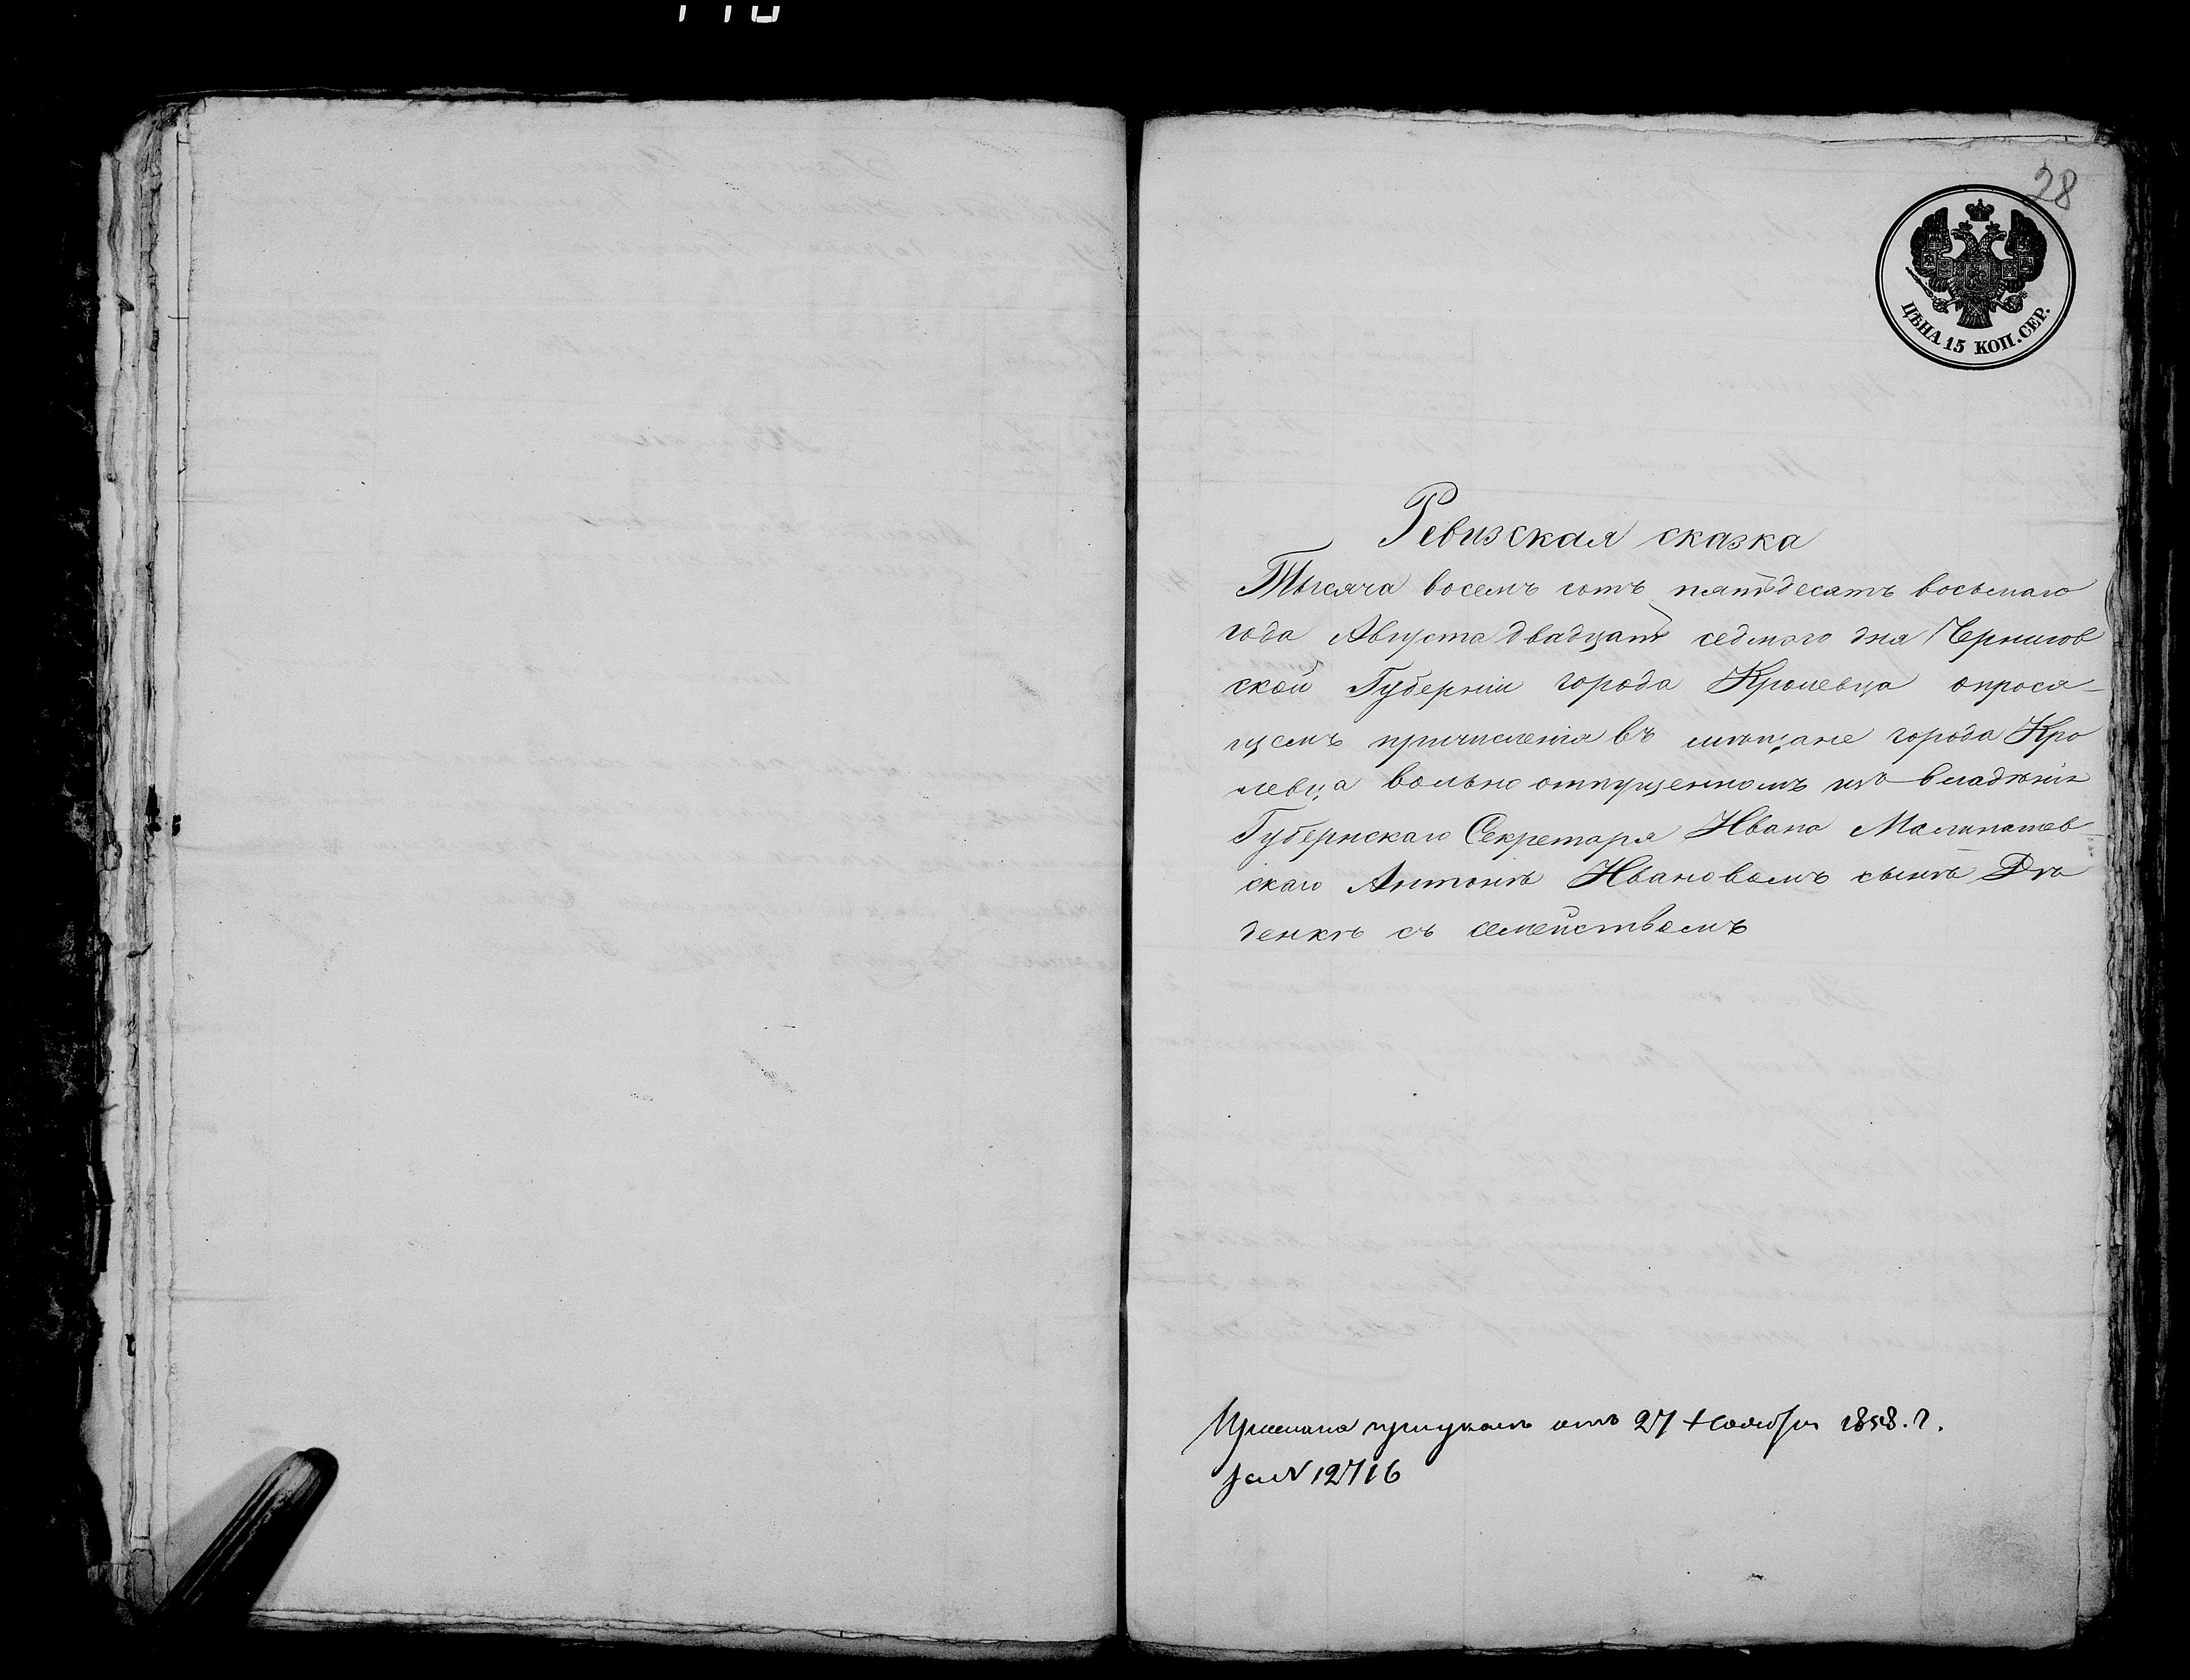 28
ЦѢНА 15 КОП. СЕР.
Ревизская сказка
Тысяча восемъ сотъ пятьдесятъ восьмаго
года Августа двадцать седьмаго дня Чернигов
ской Губерніи города Кролевца о прося-
щемъ причисленія въ мѣщане города Кро
левца вольно отпущенномъ изъ владѣнія
Губернскаго Секретаря Ивана
скаго Антонѣ Ивановомъ сынѣ Дѣ
денкѣ съ семействомъ
отъ 27 Ноября 1858. г.
за N 12716